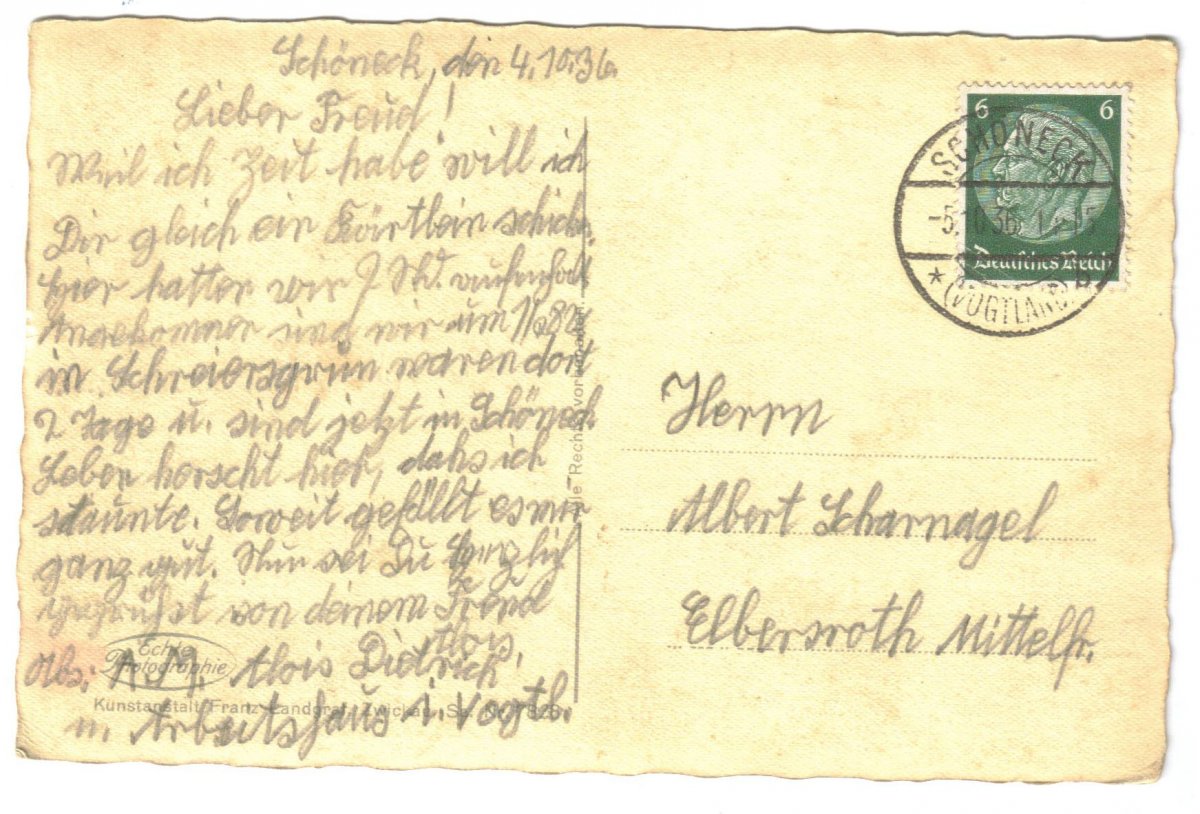 Schöneck, den 4.10.36.
Lieber Freud!
Weil ich Zeit habe will ich
Dir gleich ein Kärtlein schicken.
Hier hatten wir 7 Std. aufenhalt
Angekommen sind wir um 1/2 8
in Schreiersgrün waren dort
2 Tage u. sind jetzt in Schöneck
Leben horscht hier, dahs ich
staunte. Soweit gefällt es mir
ganz gut. Nun sei Du herzlich
gegrüßt von deinem Freud
Alois.
Abs: A.M. Alois Dietrich
Arbeitshaus i. Vogtl.
Echte
Photographie
Kunstanstalt Franz Landgraf, Zwickau, Sa.
Alle Rechte vorbehalten
6 6
Deutsches Reich
SCHÖNECK
36
* (VOGTLAND)
Herrn
Albert Scharnagel
Elbersroth Mittelfr.